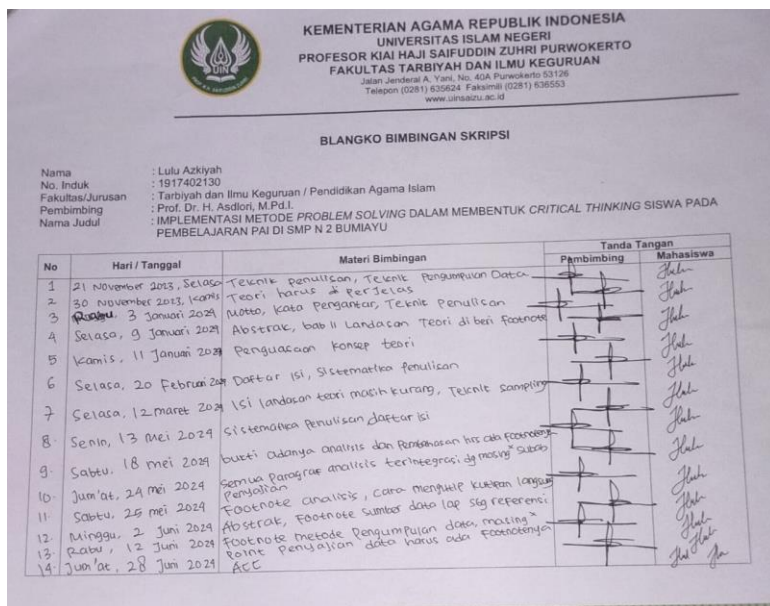 KEMENTERIAN AGAMA REPUBLIK INDONESIA
UNIVERSITAS ISLAM NEGERI
PROFESOR KIAI HAJI SAIFUDDIN ZUHRI PURWOKERTO
FAKULTAS TARBIYAH DAN ILMU KEGURUAN
Jalan Jenderal A. Yani, No. 40A Purwokerto 53126
Telepon (0281) 635624 Faksimili (0281) 636553
www.uinsaizu.ac.id
UIN
BLANGKO BIMBINGAN SKRIPSI
Nama : Lulu Azkiyah
No. Induk : 1917402130
Fakultas/Jurusan : Tarbiyah dan Ilmu Keguruan / Pendidikan Agama Islam
Pembimbing : Prof. Dr. H. Asdlori, M.Pd.I.
Nama Judul : IMPLEMENTASI METODE PROBLEM SOLVING DALAM MEMBENTUK CRITICAL THINKING SISWA PADA
PEMBELAJARAN PAI DI SMP N 2 BUMIAYU
No Hari / Tanggal Materi Bimbingan Tanda Tangan
Pembimbing Mahasiswa
1 21 November 2023, Selasa Teknik penulisan, Teknik Pengumpulan Data
2 30 November 2023, Kamis Teori harus di perjelas
3 Rabu, 3 Januari 2024 Motto, Kata Pengantar, Teknik Penulisan
4 Selasa, 9 Januari 2024 Abstrak, bab II Landasan Teori diberi footnote
5 Kamis, 11 Januari 2024 Penguasaan Konsep teori
6 Selasa, 20 Februari 2024 Daftar isi, Sistematika Penulisan
7 Selasa, 12 Maret 2024 Isi landasan teori masih kurang, Teknik sampling
8. Senin, 13 Mei 2024 Sistematika Penulisan daftar isi
9. Sabtu, 18 Mei 2024 bukti adanya analisis dan Pembahasan hrs ada footnotenya
10. Jum'at, 24 Mei 2024 Semua Paragraf analisis terintegrasi dg masing" subab
Penyajian
11. Sabtu, 25 Mei 2024 Footnote analisis, cara mengutip kutipan langsung
12. Minggu, 2 Juni 2024 Abstrak, Footnote sumber data lap sbg referensi
13. Rabu, 12 Juni 2024 Footnote metode Pengumpulan data, masing"
Point Penyajian data harus ada Footnotenya
14. Jum'at, 28 Juni 2024 ACC